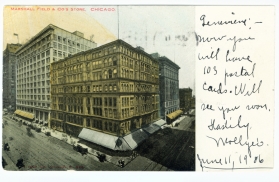 MARSHALL FIELD & CO'S STORE, CHICAGO.
Genevieve:-
now you
will have
103 postal
cards. Will
see you soon.
Hastily,
June 11, 1906